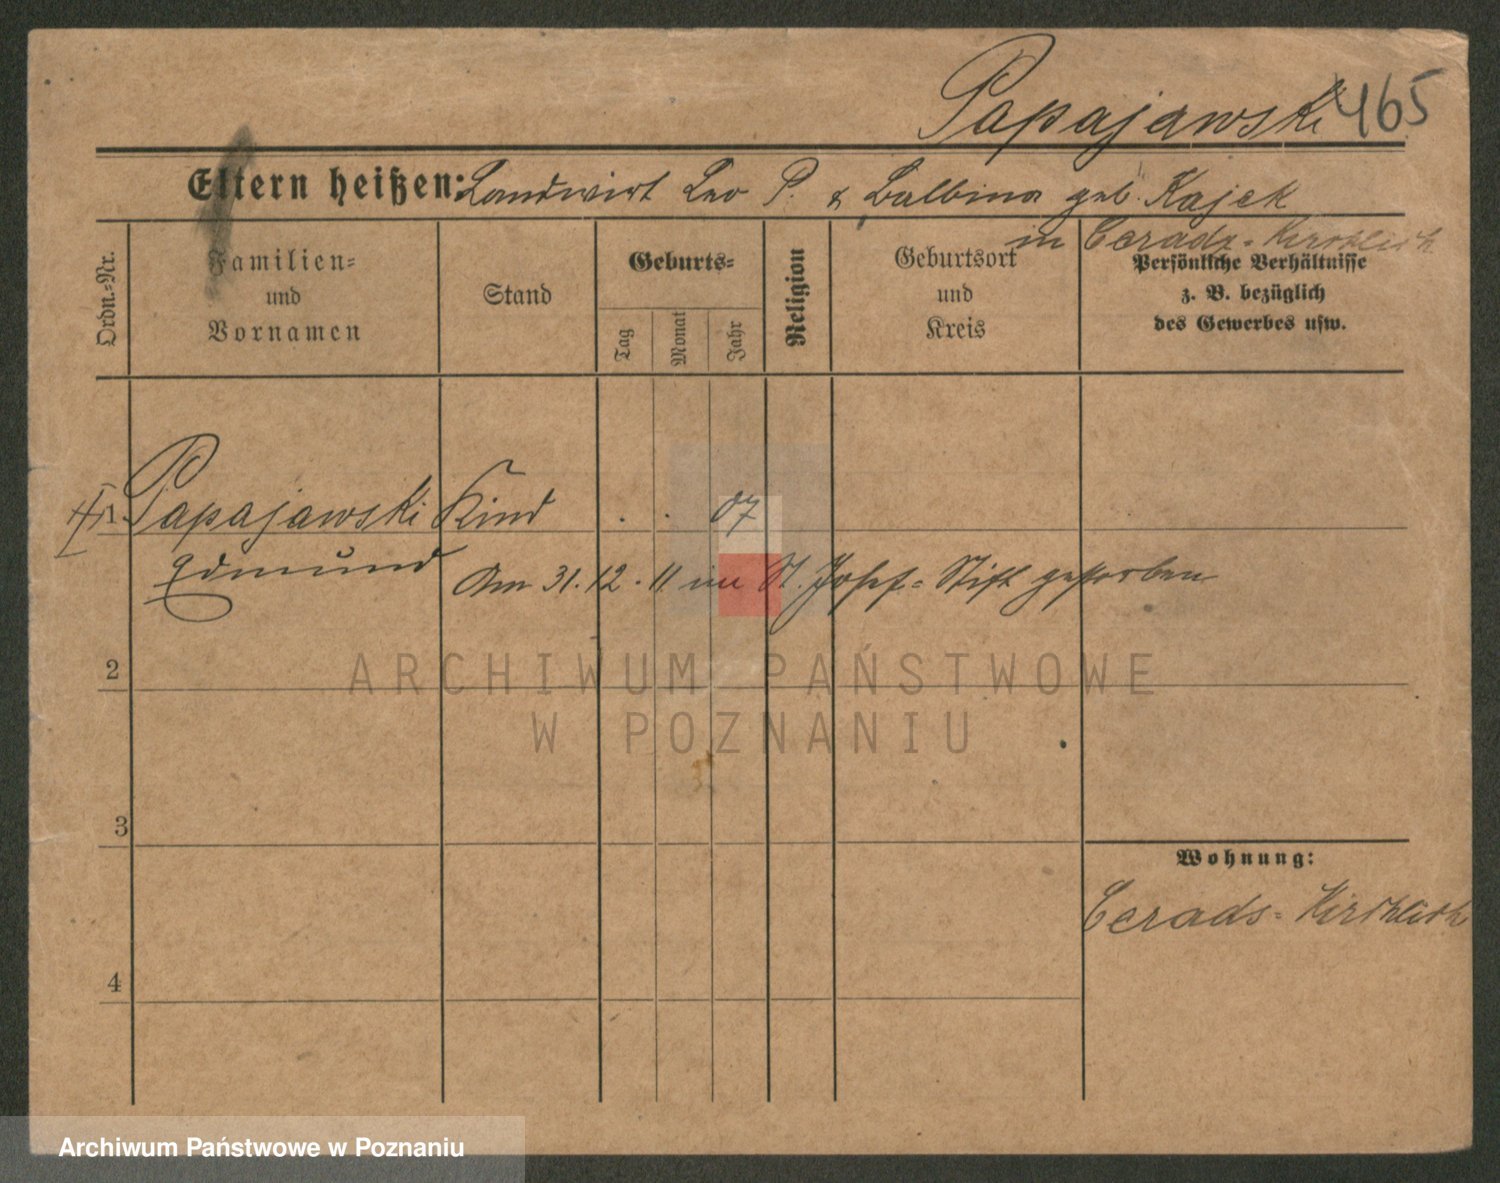 Papajawski 465
Eltern heißen: Landwirt Leo P. & Balbina geb. Kajek
in Ceradz-Kirchlich
Ordn.-Nr.
Familien-
und
Vornamen
Stand
Geburts-
Tag
Monat
Jahr
Religion
Geburtsort
und
Kreis
Persönliche Verhältnisse
z. B. bezüglich
des Gewerbes usw.
1 Papajawski Kind . . 07
Edmund
Am 31.12.11 im St. Josef-Stift gestorben
2
ARCHIWUM PAŃSTWOWE
W POZNANIU
3
Wohnung:
Cerads-Kirchlich
4
Archiwum Państwowe w Poznaniu